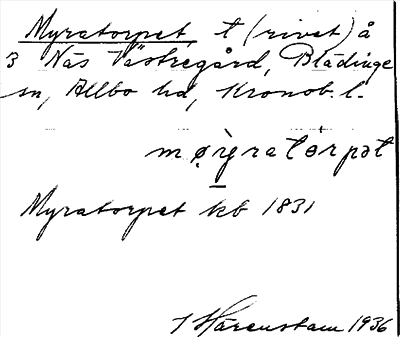 Myratorpet, t (rivet) å
3 Näs Västregård, Blädinge
sn, Allbo hd, Kronob. l.
mø̀rạratorpət
Myratorpet kb 1831
I Härenstam 1936